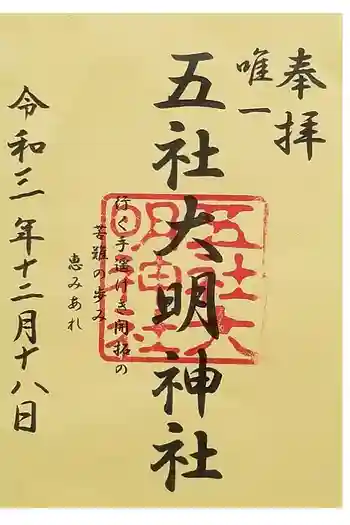 奉拝
唯一
五社大明神社
五社大明神社
行く手遥けき開拓の
苦難の歩み
恵みあれ
令和三年十二月十八日